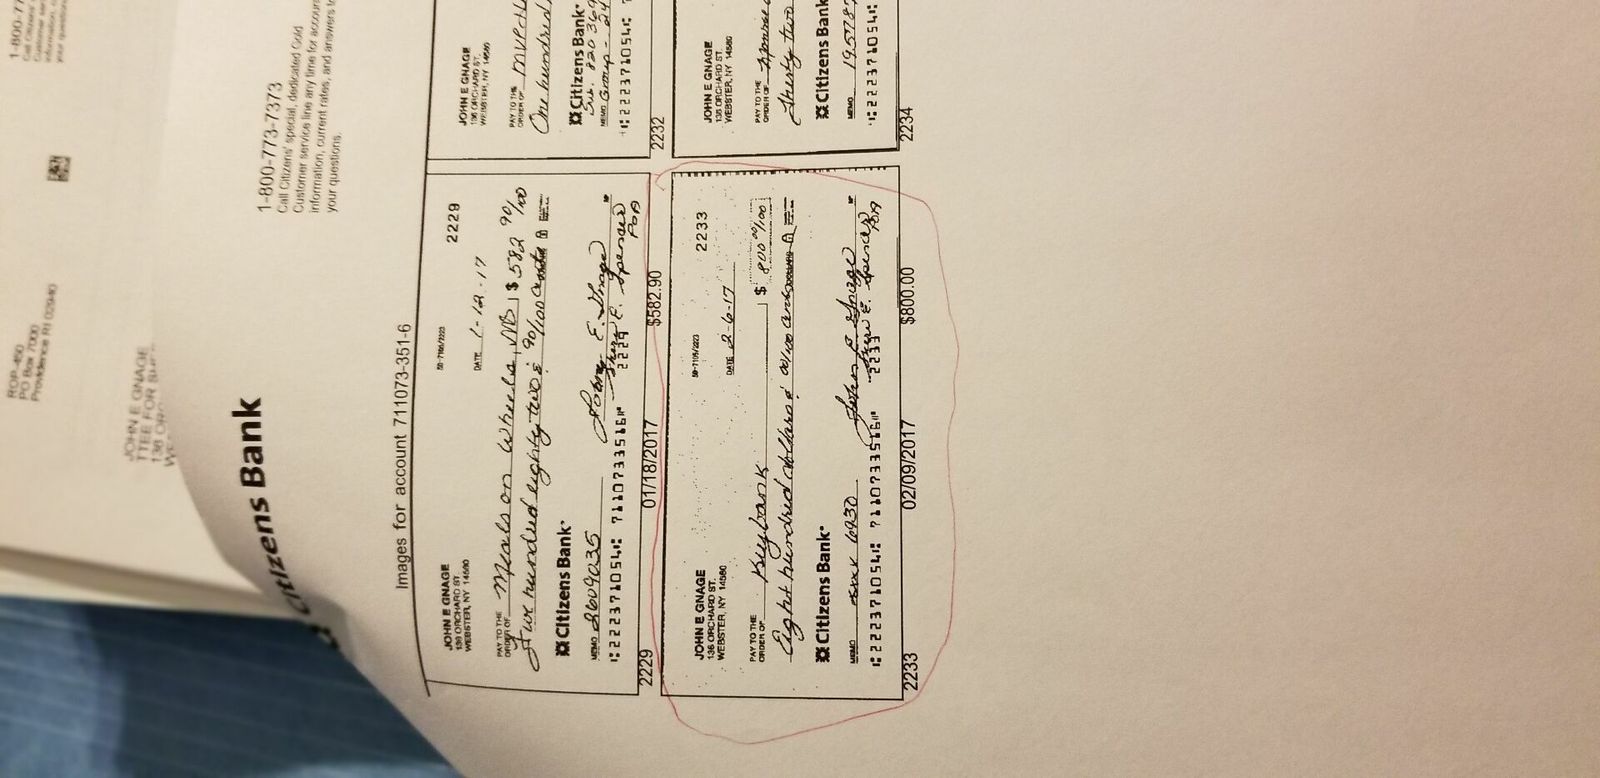 1-800-77
Call Citizens'
Customer serv
information, c
your questions
ROP-450
PO Box 7000
Providence RI 02940
JOHN E GNAGE
TTEE FOR
1-800-773-7373
Call Citizens' special, dedicated Gold
Customer service line any time for account
information, current rates, and answers to
your questions.
Citizens Bank
Images for account 711073-351-6
JOHN E GNAGE
136 ORCHARD ST.
WEBSTER, NY 14580
2229
50-7105/2223
DATE 1-12-17
PAY TO THE
ORDER OF Meals on Wheels, $ 582 90/100
Five hundred eighty two & 90/100
Citizens Bank
MEMO 2609035
2223710541 7110733516 2229
POA
2229 01/18/2017 $582.90
JOHN E GNAGE
136 ORCHARD ST.
WEBSTER, NY 14580
PAY TO THE
ORDER OF
One hundred
Citizens Bank
MEMO Group -
2223710541
2232
JOHN E GNAGE
136 ORCHARD ST.
WEBSTER, NY 14580
2233
50-7105/2223
DATE 2-6-17
PAY TO THE
ORDER OF Keybank $ 800 00/100
Eight hundred dollars & 00/100
Citizens Bank
MEMO 6930 John E. Gnage
2223710541 7110733516 2233
E. Spencer POA
2233 02/09/2017 $800.00
JOHN E GNAGE
136 ORCHARD ST.
WEBSTER, NY 14580
PAY TO THE
ORDER OF
Thirty two
Citizens Bank
MEMO 195787
2223710541
2234